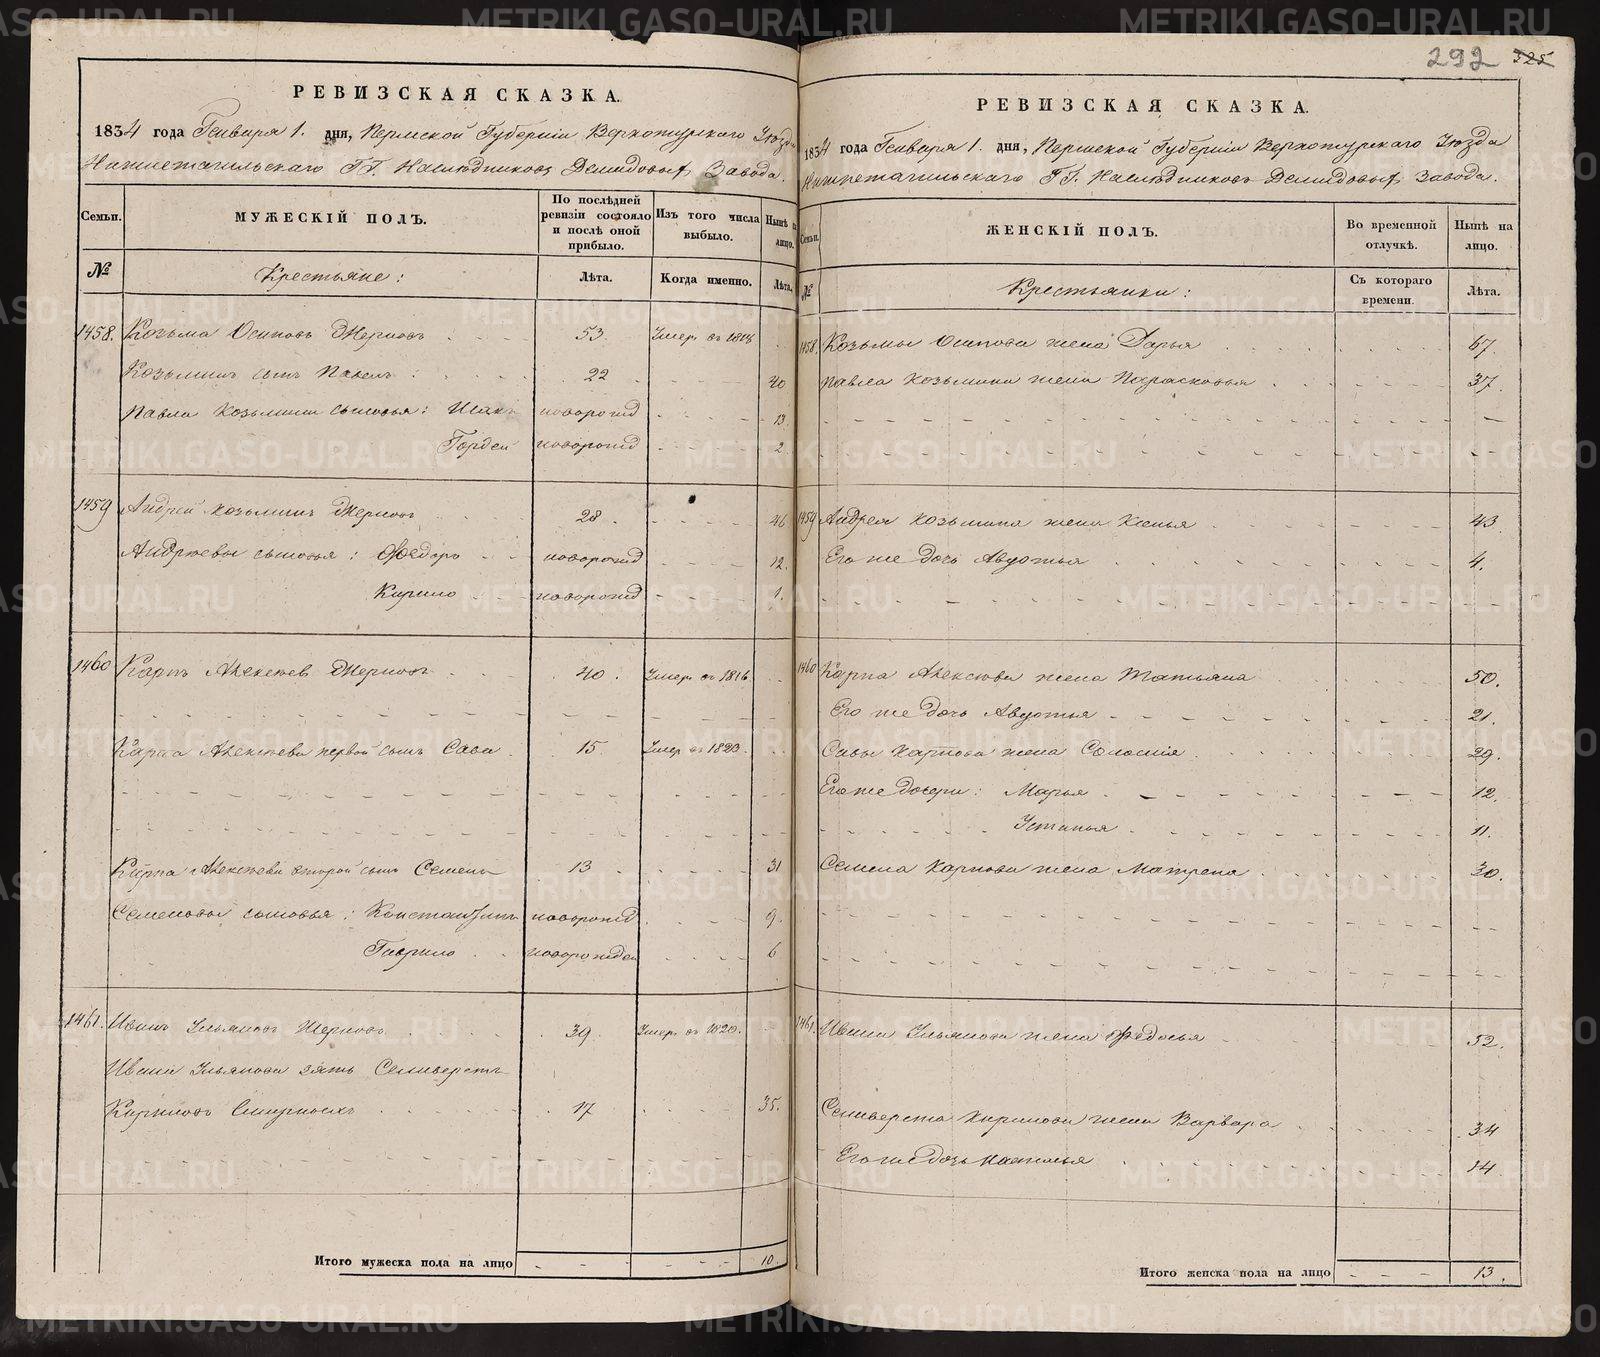 292 325
РЕВИЗСКАЯ СКАЗКА.
1834 года Генваря 1. дня, Пермской Губернiи Верхотурскаго Уѣзда
Нижнетагильскаго ГГ. Наслѣдниковъ Демидовыхъ Завода.
Семьи. МУЖЕСКIЙ ПОЛЪ. По послѣдней ревизiи состояло и послѣ оной прибыло. Изъ того числа выбыло. Нынѣ на лицо.
№ Крестьяне: Лѣта. Когда именно. Лѣта.
1458. Козьма Осиповъ Жерновъ 53 Умер. въ 1818
Козьминъ сынъ Павелъ 22 40
Павла Козьмина сыновья: Исакъ новорожд 13
Гордей новорожд 2
1459 Андрей Козьминъ Жерновъ 28 46
Андреевы сыновья: Федоръ новорожд 12
Кирило новорожд 1
1460 Карпъ Алексѣев Жерновъ 40 Умер. въ 1816
Карпа Алексѣева первой сынъ Сава 15 Умер. въ 1823
Карпа Алексѣева второй сынъ Семенъ 13 31
Семеновы сыновья: Константинъ новорожд 9
Гаврило новорожден 6
1461. Иванъ Ульяновъ Жерновъ 39 Умер. въ 1820.
Ивана Ульянова зять Селиверстъ
Кириловъ Смирныхъ 17 35.
Итого мужеска пола на лицо 10.
РЕВИЗСКАЯ СКАЗКА.
1834 года Генваря 1. дня, Пермской Губернiи Верхотурскаго Уѣзда
Нижнетагильскаго ГГ. Наслѣдниковъ Демидовыхъ Завода.
Семьи. ЖЕНСКIЙ ПОЛЪ. Во временной отлучкѣ. Нынѣ на лицо.
№ Крестьянки: Съ котораго времени. Лѣта.
1458. Козьмы Осипова жена Дарья 67
Павла Козьмина жена Парасковья 37
1459 Андрея Козьмина жена Ксенья 43
Его же дочь Авдотья 4.
1460 Карпа Алексѣева жена Татьяна 50.
Его же дочь Авдотья 21.
Савы Карпова жена Соломия 29.
Его же дочери: Марья 12.
Устинья 11.
Семена Карпова жена Матрена 30.
1461. Ивана Ульянова жена Федосья 52.
Селиверста Кирилова жена Варвара 34
Его же дочь Наталья 14
Итого женска пола на лицо 13.
METRIKI.GASO-URAL.RU